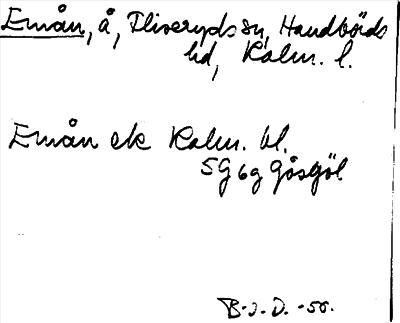 Emån, å, Fliseryds sn, Handbörds
hd, Kalm. l.
Emån ek Kalm. bl.
5g 6g Gåsgöl
B-J. D. -50.